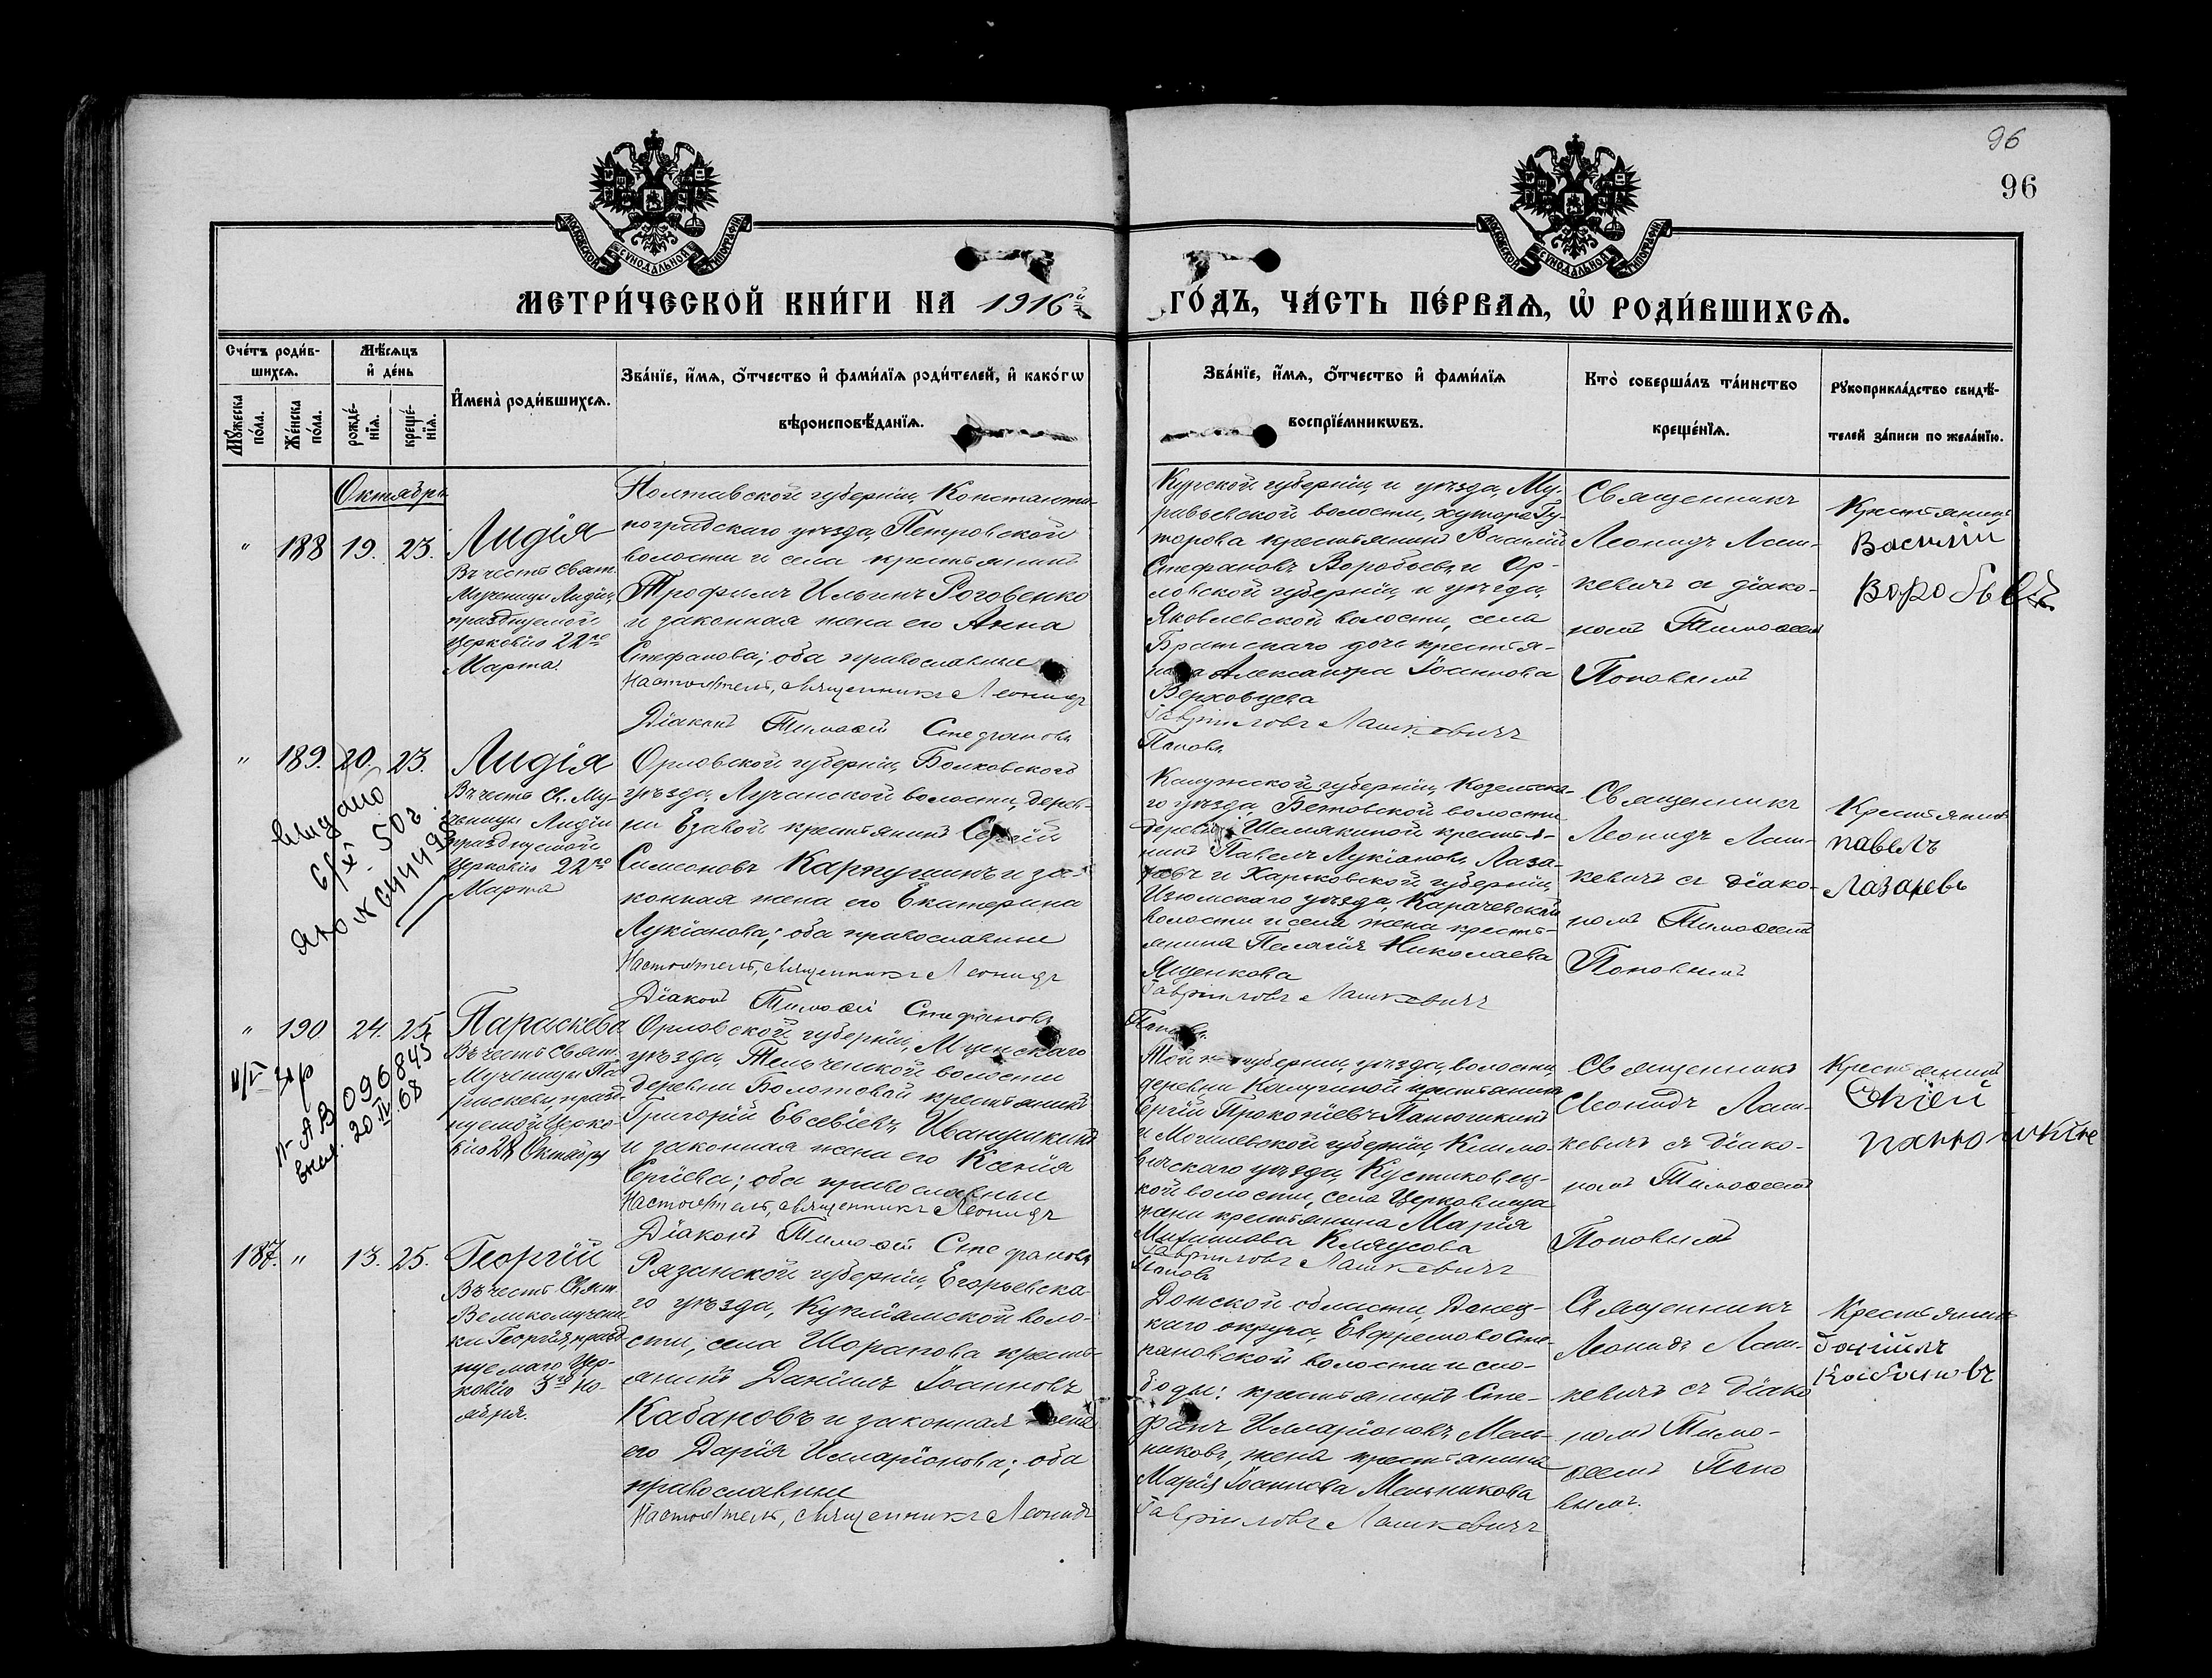 96
96
МОСКОВСКОЙ СѴНОДАЛЬНОЙ ТИПОГРАФІИ
МОСКОВСКОЙ СѴНОДАЛЬНОЙ ТИПОГРАФІИ
МЕТРИ́ЧЕСКОЙ КНИ́ГИ НА 1916й
ГО́ДЪ, ЧА́СТЬ ПЕ́РВАѦ, Ѡ҆ РОДИ́ВШИХСѦ.
Сче́тъ роди́в-
шихсѧ.
Мꙋ́жеска
по́ла.
Же́нска
по́ла.
Мѣ́сѧцъ
и҆ де́нь
рожде́-
нїѧ.
креще́-
нїѧ.
И҆мена̀ роди́вшихсѧ.
Зва́нїе, и҆́мѧ, ѻ҆́тчество и҆ фами́лїѧ роди́телей, и҆ како́гѡ
вѣроисповѣ́данїѧ.
Зва́нїе, и҆́мѧ, ѻ҆́тчество и҆ фами́лїѧ
воспрїе́мникѡвъ.
Кто̀ соверша́лъ та́инство
креще́нїѧ.
Рꙋкоприкла́дство свидѣ́-
телей за́писи по жела́нїю.
Октябрь
" 188 19. 23.
Лидія
Въ честь Свят.
Мученицы Лидіи,
празднуемой
Церковію 22го
Марта.
Полтавской губерніи, Константи-
ноградскаго уѣзда, Петровской
волости и села крестьянинъ
Трофимъ Ильинъ Роговенко
и законная жена его Анна
Стефанова; оба православные
Настоятель, священникъ Леонидъ
Діаконъ Тимоѳей Стефановъ
Курской губерніи и уѣзда, Му-
равьевской волости, хутора Гу-
торова крестьянинъ Василій
Стефановъ Воробьевъ и Ор-
ловской губерніи и уѣзда,
Яковлевской волости, села
Братскаго дочь крестья-
нина Александра Іоаннова
Верховцева
Гавріиловъ Лашкевичъ
Поповъ
Священникъ
Леонидъ Лаш-
кевичъ съ діако-
номъ Тимоѳеемъ
Поповымъ
Крестьянинъ
Василій
Воробьевъ
" 189. 20. 23.
выдано
50г.
Лидія
Въ честь Св. Му-
ченицы Лидіи
празднуемой
Церковію 22го
Марта
Орловской губерніи, Болховского
уѣзда, Лучанской волости, дерев-
ни Езовой крестьянинъ Сергій
Симеоновъ Карпушинъ и за-
конная жена его Екатерина
Лукіанова; оба православные
Настоятель, священникъ Леонидъ
Діаконъ Тимоѳей Стефановъ
Калужской губерніи, Козельска-
го уѣзда Бетовской волости
деревни Шемякиной крестья-
нинъ Павелъ Лукіановъ Лаза-
ревъ и Харьковской губерніи,
Изюмскаго уѣзда, Карачевской
волости и села жена кресть-
янина Пелагія Николаева
Ященкова
Гавріиловъ Лашкевичъ
Поповъ
Священникъ
Леонидъ Лаш-
кевичъ съ діако-
номъ Тимоѳеемъ
Поповымъ
Крестьянинъ
Павелъ
Лазаревъ
" 190 24. 25.
II-АВ 096845
выд. 20 II.68
Параскева
Въ честь Свят.
Мученицы Па-
раскевы, празд-
нуемой Церко-
вію 28 Октября
Орловской губерніи, Мценскаго
уѣзда, Тельченской волости
деревни Болотовой крестьянинъ
Григорій Евсевіевъ Иванушкинъ
и законная жена его Ксенія
Сергіева; оба православные
Настоятель, священникъ Леонидъ
Діаконъ Тимоѳей Стефановъ
Той же губерніи, уѣзда, волости,
деревни Калугиной крестьянинъ
Сергій Прокопіевъ Панюшкинъ
и Могилевской губерніи, Климо-
вичскаго уѣзда, Кустиковец-
кой волости, села Церковища
жена крестьянина Марія
Митинова Кляусова
Гавріиловъ Лашкевичъ
Поповъ
Священникъ
Леонидъ Лаш-
кевичъ съ діако-
номъ Тимоѳеемъ
Поповымъ
Крестьянинъ
187. " 13. 25.
Георгій
Въ честь Свят.
Великомучени-
ка Георгія, празд-
нуемаго Цер-
ковію 3го Но-
ября.
Рязанской губерніи, Егорьевска-
го уѣзда, Куплиямской воло-
сти, села Шарапова кресть-
янинъ Даніилъ Іоанновъ
Кабановъ и законная жена
его Дарія Илларіонова; оба
православные
Настоятель, священникъ Леонидъ
Донской области, Донец-
каго округа, Ефремово Сте-
пановской волости и сло-
боды: крестьянинъ Сте-
фанъ Илларіоновъ Мель-
никовъ, жена крестьянина
Марія Іоаннова Мельникова
Гавріиловъ Лашкевичъ
Священникъ
Леонидъ Лаш-
кевичъ съ діако
номъ Тимо-
ѳеемъ Попо
вымъ.
Крестьянинъ
Кабановъ